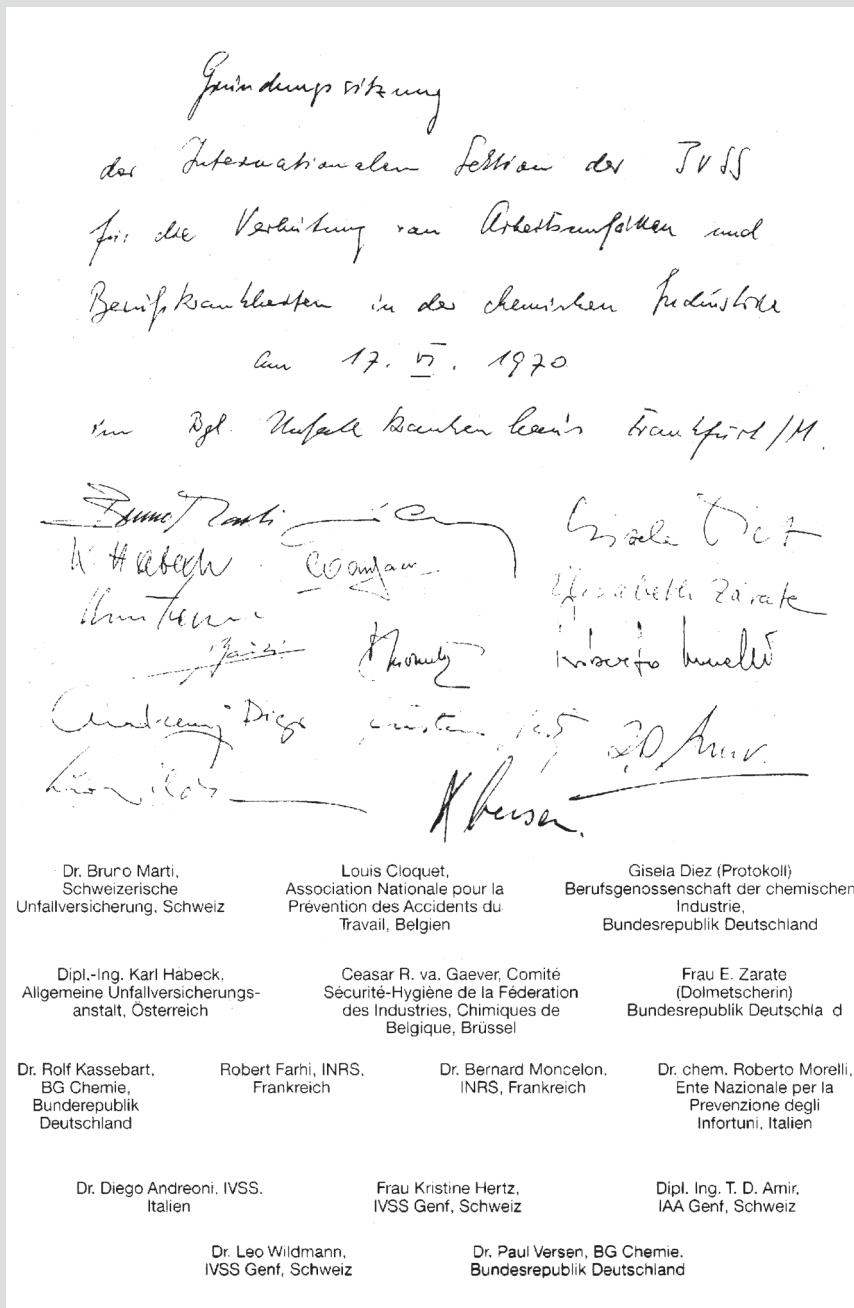 Gründungssitzung
der Internationalen Sektion der IVSS
für die Verhütung von Arbeitsunfällen und
Berufskrankheiten in der chemischen Industrie
am 17. VI. 1970
im Bgl. Unfallkrankenhaus Frankfurt/M.
Bruno Marti
Gisela Diez
K. Habeck
Elisabeth Zárate
Roberto Morelli
Diego
T.D. Amir.
Versen.
Dr. Bruno Marti,
Schweizerische
Unfallversicherung, Schweiz
Louis Cloquet,
Association Nationale pour la
Prévention des Accidents du
Travail, Belgien
Gisela Diez (Protokoll)
Berufsgenossenschaft der chemischen
Industrie,
Bundesrepublik Deutschland
Dipl.-Ing. Karl Habeck,
Allgemeine Unfallversicherungs-
anstalt, Österreich
Ceasar R. va. Gaever, Comité
Sécurité-Hygiène de la Féderation
des Industries, Chimiques de
Belgique, Brüssel
Frau E. Zarate
(Dolmetscherin)
Bundesrepublik Deutschla d
Dr. Rolf Kassebart,
BG Chemie,
Bunderepublik
Deutschland
Robert Farhi, INRS,
Frankreich
Dr. Bernard Moncelon,
INRS, Frankreich
Dr. chem. Roberto Morelli,
Ente Nazionale per la
Prevenzione degli
Infortuni, Italien
Dr. Diego Andreoni, IVSS.
Italien
Frau Kristine Hertz,
IVSS Genf, Schweiz
Dipl. Ing. T. D. Amir,
IAA Genf, Schweiz
Dr. Leo Wildmann,
IVSS Genf, Schweiz
Dr. Paul Versen, BG Chemie.
Bundesrepublik Deutschland